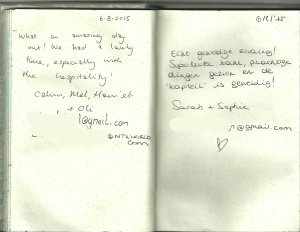 6.8.2015
What an amazing day
out! We had a lovely
time, especially with
the hospitality!
Calum, Mel, Harriet
+ Oli
1@gmail.com
@NTLWORLD
.com
6/8/'15
Echt geweldige ervaring!
Spectaculaire tocht, prachtige
dingen gezien en de
"kapitein" is geweldig!
Sarah + Sophie
@gmail.com